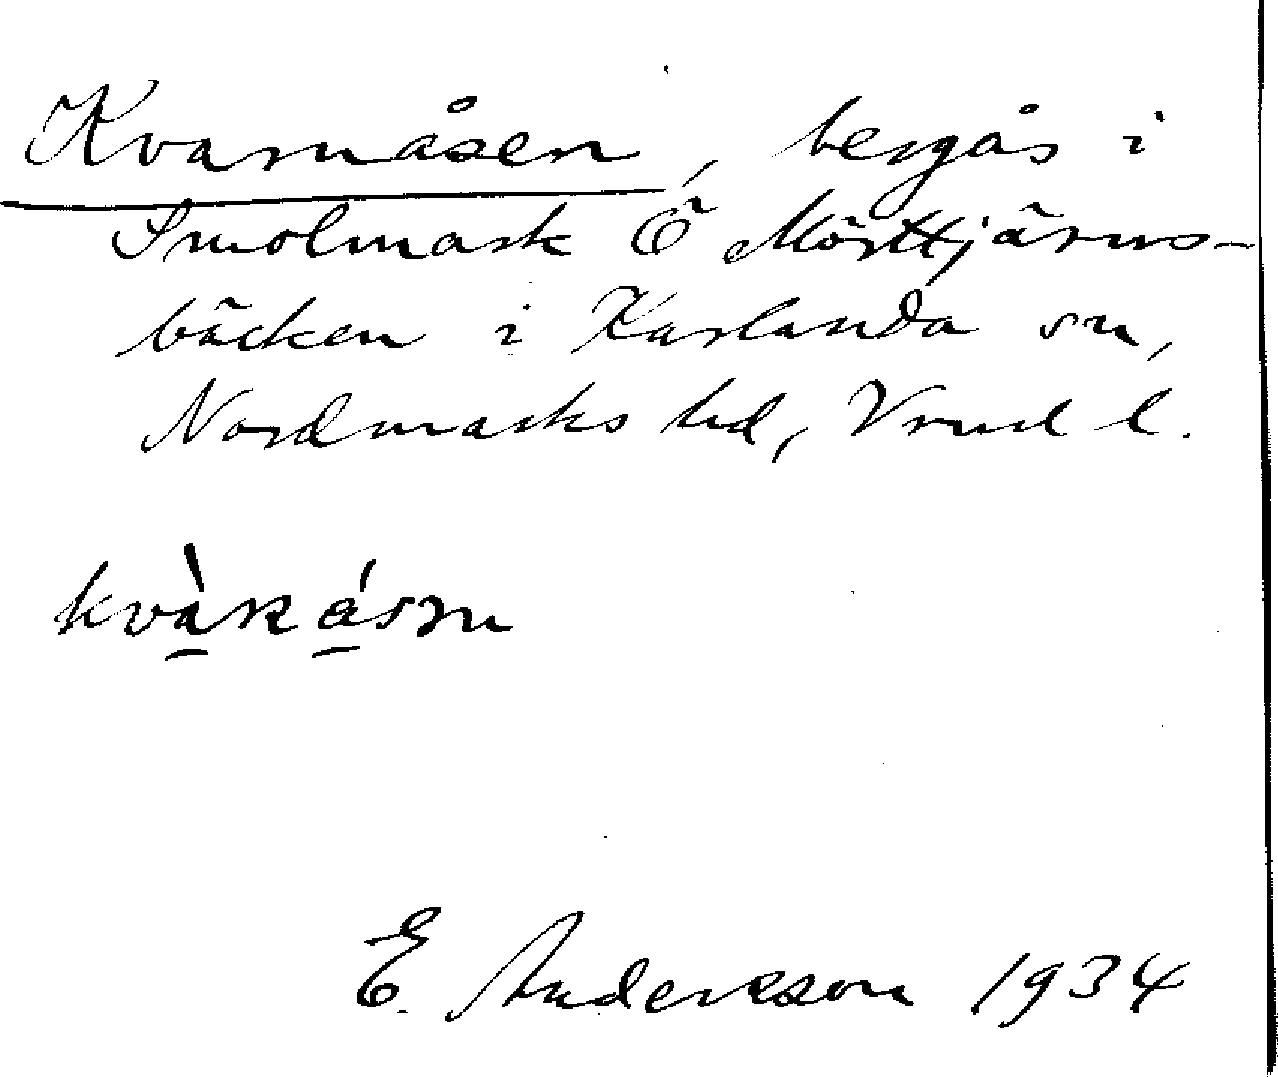 Kvarnåsen, bergås i
Smolmark Ö Mörttjärns-
bäcken i Karlanda sn,
Nordmarks hd, Vrml l.
E. Andersson 1934